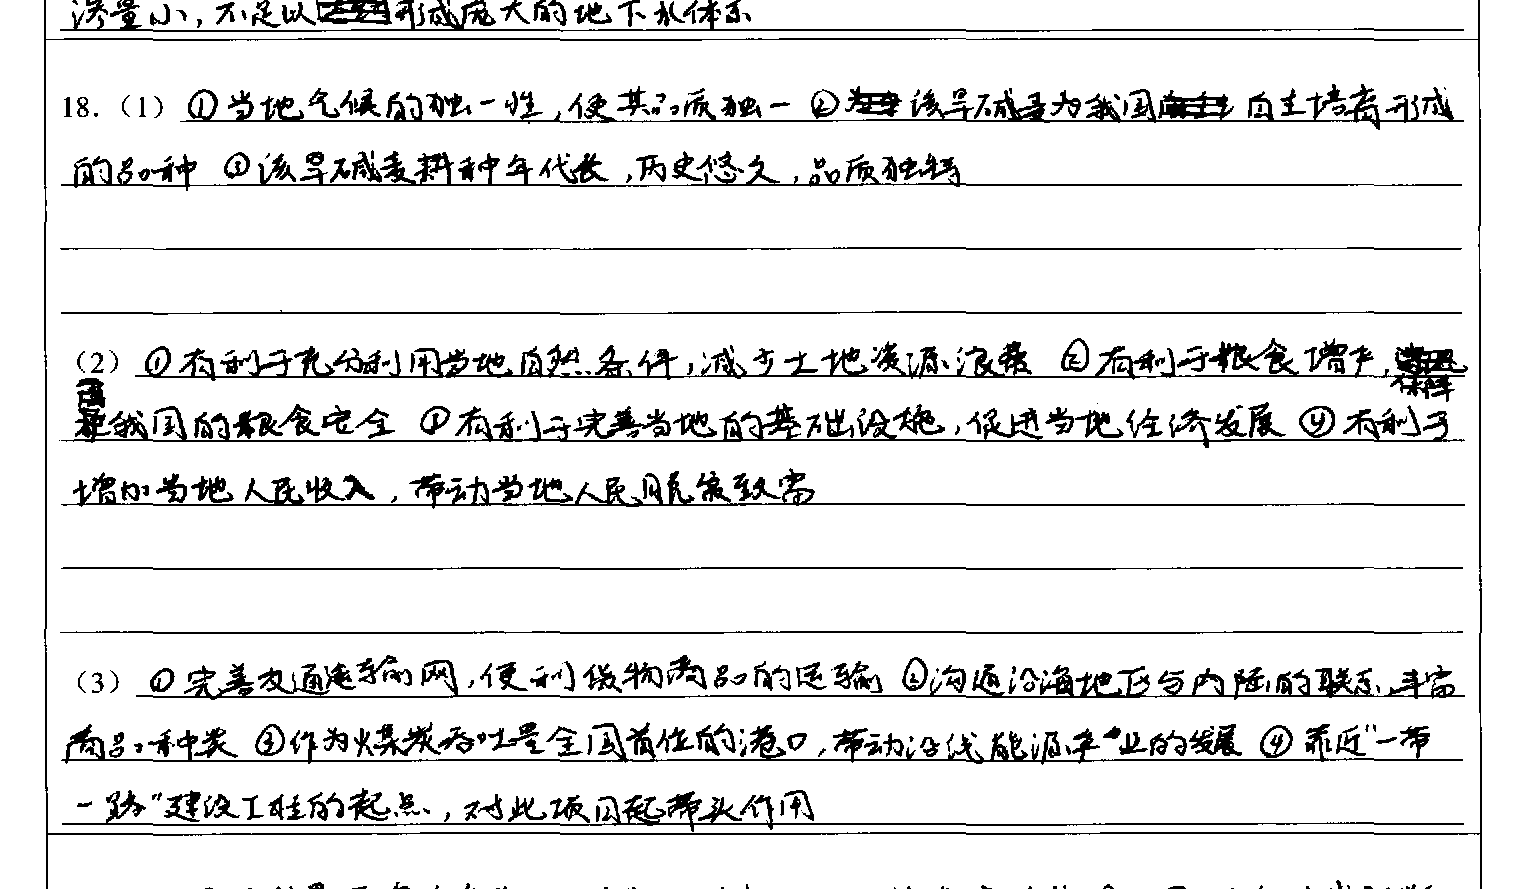 渗量小，不足以形成庞大的地下水体系
18.（1）①当地气候的独一性，使其品质独一 ②该旱碱麦为我国自主培育形成
的品种 ③该旱碱麦耕种年代长，历史悠久，品质独特
（2）①有利于充分利用当地自然条件，减少土地资源浪费 ②有利于粮食增产，保障
我国的粮食安全 ③有利于完善当地的基础设施，促进当地经济发展 ④有利于
增加当地人民收入，带动当地人民脱贫致富
（3）①完善交通运输网，便利货物商品的运输 ②沟通沿海地区与内陆的联系，丰富
商品种类 ③作为煤炭吞吐量全国首位的港口，带动沿线能源产业的发展 ④靠近“一带
一路”建设工程的起点，对此项目起带头作用